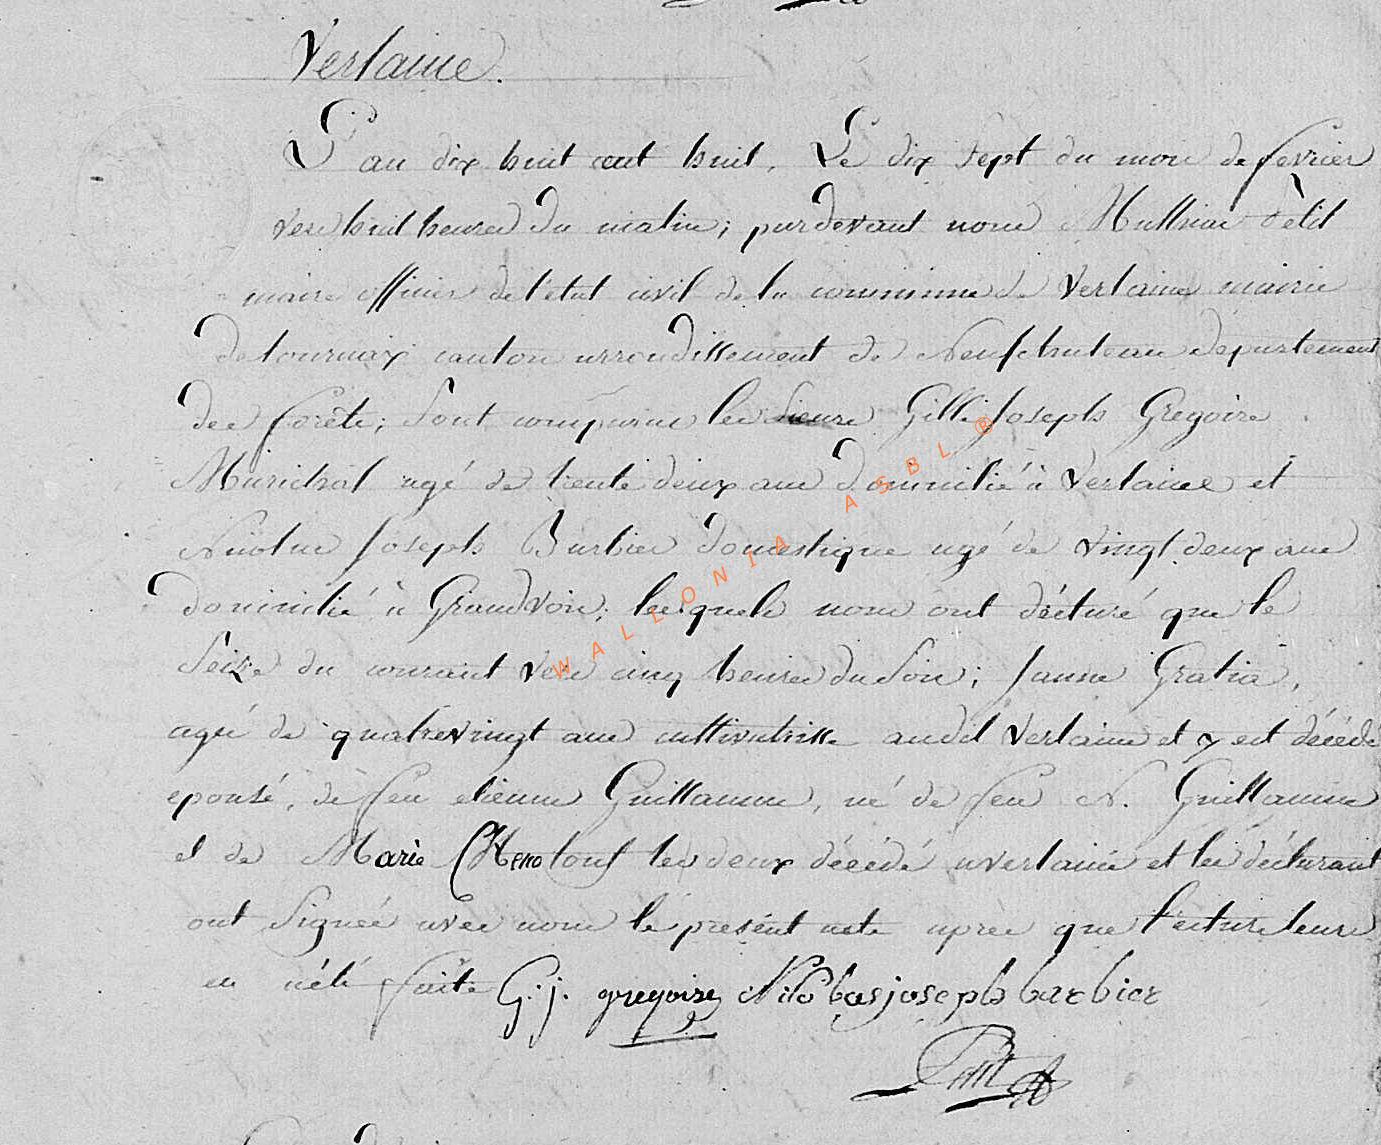 Verlaine.
L'an dix huit cent huit, Le dix sept du mois de fevrier
vers huit heures du matin; pardevant nous Mathias Petit
maire officier de l'etat civil de la commune de Verlaine mairie
de tournay canton arrondissement de Neufchateau département
des forêts; sont comparus les sieurs Gille Joseph Gregoire
Marichal agé de trente deux ans domicilié à Verlaine et
Nicolas Joseph Barbier domestique agé de vingt deux ans
domicilié à Grandvoir; lesquels nous ont déclaré que le
seize du courant vers cinq heures du soir; Janne Gratia,
agé de quatrevingt ans cultivatrisse audit Verlaine et y est décédé
epousé, de feu etienne Guillaume, né de feu N. Guillaume
et de Marie tous les deux décédé a verlaine et les déclarant
ont signéé avec nous le présent acte après que lecture leurs
en a été faite G.j. gregoire Nicolas joseph barbier
Petit
WALLONIA ASBL ®